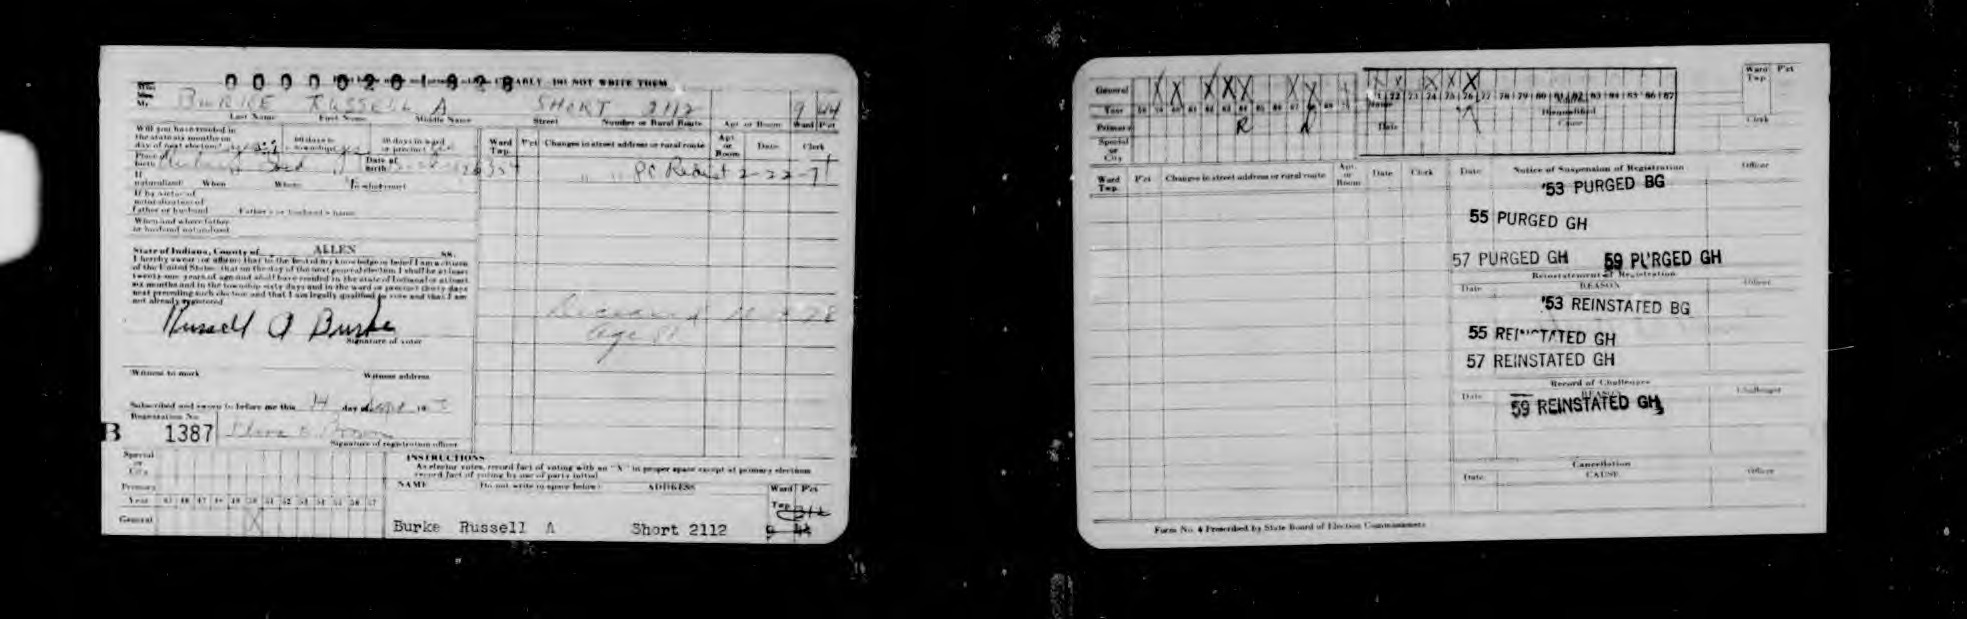 0000020192B ARLY DO NOT WRITE THEM
Miss
Mrs.
Mr. BURKE RUSSELL A SHORT 2112 9 44
Last Name First Name Middle Name Street Number or Rural Route Apt or Room Ward Pct
Will you have resided in
the state six months on
day of next election? yes 60 days in township yes 30 days in ward or precinct
Ward Twp. Pct Changes in street address or rural route Apt. or Room Date Clerk
Place of birth Date of birth
" " PC Redist 2-22-71
If naturalized: When Where In what court
If by virtue of
naturalization of
father or husband Father's or husband's name
When and where father
or husband naturalized
State of Indiana, County of ALLEN ss.
I hereby swear (or affirm) that to the best of my knowledge or belief I am a citizen
of the United States; that on the day of the next general election I shall be at least
twenty-one years of age and shall have resided in the state of Indiana for at least
six months and in the township sixty days and in the ward or precinct thirty days
next preceding such election and that I am legally qualified to vote and that I am
not already registered
Deceased 78
Age
Russell A Burke
Signature of voter
Witness to mark Witness address
Subscribed and sworn to before me this 14 day of 19
Registration No.
B 1387
Signature of registration officer
Special
or
City
INSTRUCTIONS
As elector votes, record fact of voting with an "X" in proper space except at primary elections
record fact of voting by use of party initial
Primary
NAME Do not write in space below: ADDRESS Ward Pct
Year 45 46 47 48 49 50 51 52 53 54 55 56 57
Twp.
General X
Burke Russell A Short 2112 9 44
General X X X X X X X X X X X X
Year
Primary R
Special
or
City
Ward Twp.
Pct
Clerk
Ward Twp. Pct Changes in street address or rural route Apt. or Room Date Clerk
Date Notice of Suspension of Registration Officer
'53 PURGED BG
55 PURGED GH
57 PURGED GH 59 PURGED GH
Reinstatement of Registration
Date REASON Officer
'53 REINSTATED BG
55 REINSTATED GH
57 REINSTATED GH
Record of Challenges
Date REASON Challenger
59 REINSTATED GH
Cancellation
Date CAUSE Officer
Form No. 4 Prescribed by State Board of Election Commissioners